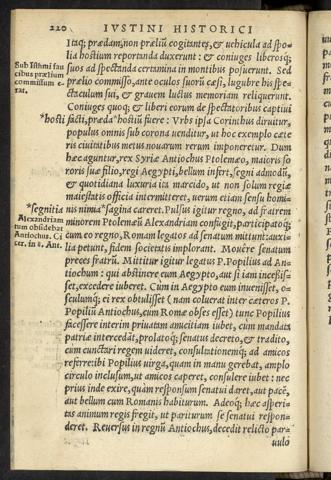 220 IVSTINI HISTORICI
Itaq; prædam, non præliū cogitantes, & vehicula ad spo-
lia hostium reportanda duxerunt: & coniuges liberosq;
Sub ipsius fau
suos ad spectanda certamina in montibus posuerunt. Sed
cibus prælium
prælio commisso, ante oculos suorū cæsi, lugubre his spe-
commissum e-
rat.
ctaculum sui, & grauem luctus memoriam reliquerunt.
Coniuges quoq; & liberi eorum de spectatoribus captiui
*hosti facti, præda *hostiū fuere: Vrbs ipsa Corinthus diruitur,
populus omnis sub corona venditur, ut hoc exemplo cæte
ris ciuitatibus metus nouarum rerum imponeretur. Dum
hæc aguntur, rex Syriæ Antiochus Ptolemæo, maioris so
roris suæ filio, regi Aegypti, bellum infert, segni admodū,
& quotidiana luxuria ita marcido, ut non solum regiæ
maiestatis officia intermitteret, uerum etiam sensu homi-
*segnitia
nis nimia *sagina careret. Pulsus igitur regno, ad fratrem
Alexandriam
minorem Ptolemæū Alexandriam confugit, participatoq;
tum obsidebat
cum eo regno, Romam legatos ad senatum mittunt: auxi-
Antiochus. Ci
cer. in 8. Ant.
lia petunt, fidem societatis implorant. Mouere senatum
preces fratrū. Mittitur igitur legatus P. Popilius ad An-
tiochum: qui abstinere eum Aegypto, aut si iam incesßis-
set, excedere iuberet. Cūm in Aegypto eum inuenisset, o-
sculumq; ei rex obtulisset (nam coluerat inter cæteros P.
Popiliū Antiochus, cum Romæ obses esset) tunc Popilius
facessere interim priuatam amicitiam iubet, cum mandata
patriæ intercedāt, prolatoq; senatus decreto, & tradito,
cùm cunctari regem uideret, consultationemq; ad amicos
referre: ibi Popilius uirga, quam in manu gerebat, amplo
circulo inclusum, ut amicos caperet, consulere iubet: nec
prius inde exire, quàm responsum senatui daret, aut pacē,
aut bellum cum Romanis habiturum. Adeoq; hæc asperi-
tas animum regis fregit, ut pariturum se senatui respon-
deret. Reuersus in regnū Antiochus, decedit relicto par-
uulo